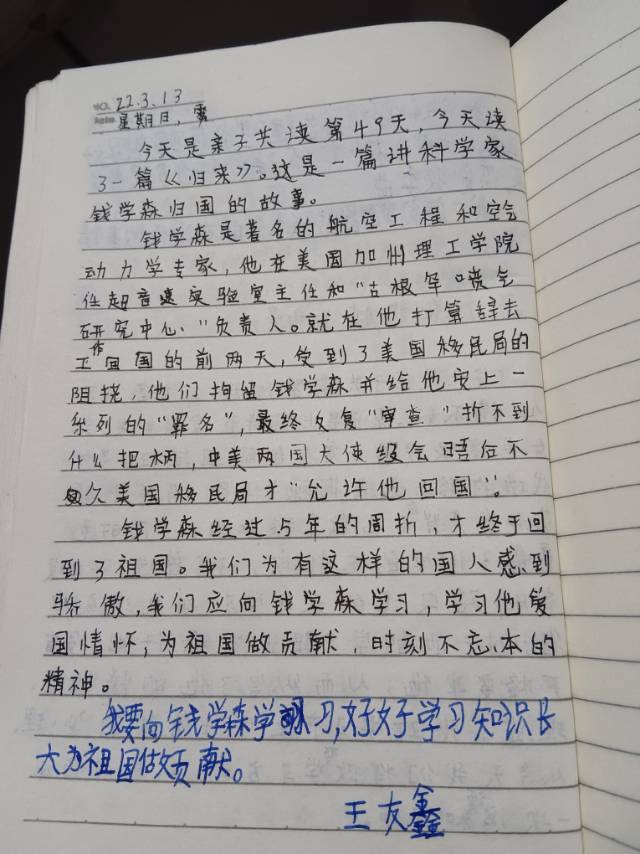 NO. 22.3.13
Date 星期日，雾
今天是亲子共读第49天，今天读
了一篇《归来》。这是一篇讲科学家
钱学森归国的故事。
钱学森是著名的航空工程和空气
动力学专家，他在美国加州理工学院
任超音速实验室主任和"古根罕喷气
研究中心"负责人。就在他打算辞去
工作回国的前两天，受到了美国移民局的
阻挠，他们拘留钱学森并给他安上一
系列的"罪名"，最终反复"审查"折不到
什么把柄，中美两国大使级会晤后不
久美国移民局才"允许他回国"。
钱学森经过5年的周折，才终于回
到了祖国。我们为有这样的国人感到
骄傲，我们应向钱学森学习，学习他爱
国情怀，为祖国做贡献，时刻不忘本的
精神。
我要向钱学森学习，好好学习知识长
大为祖国做贡献。
王友鑫